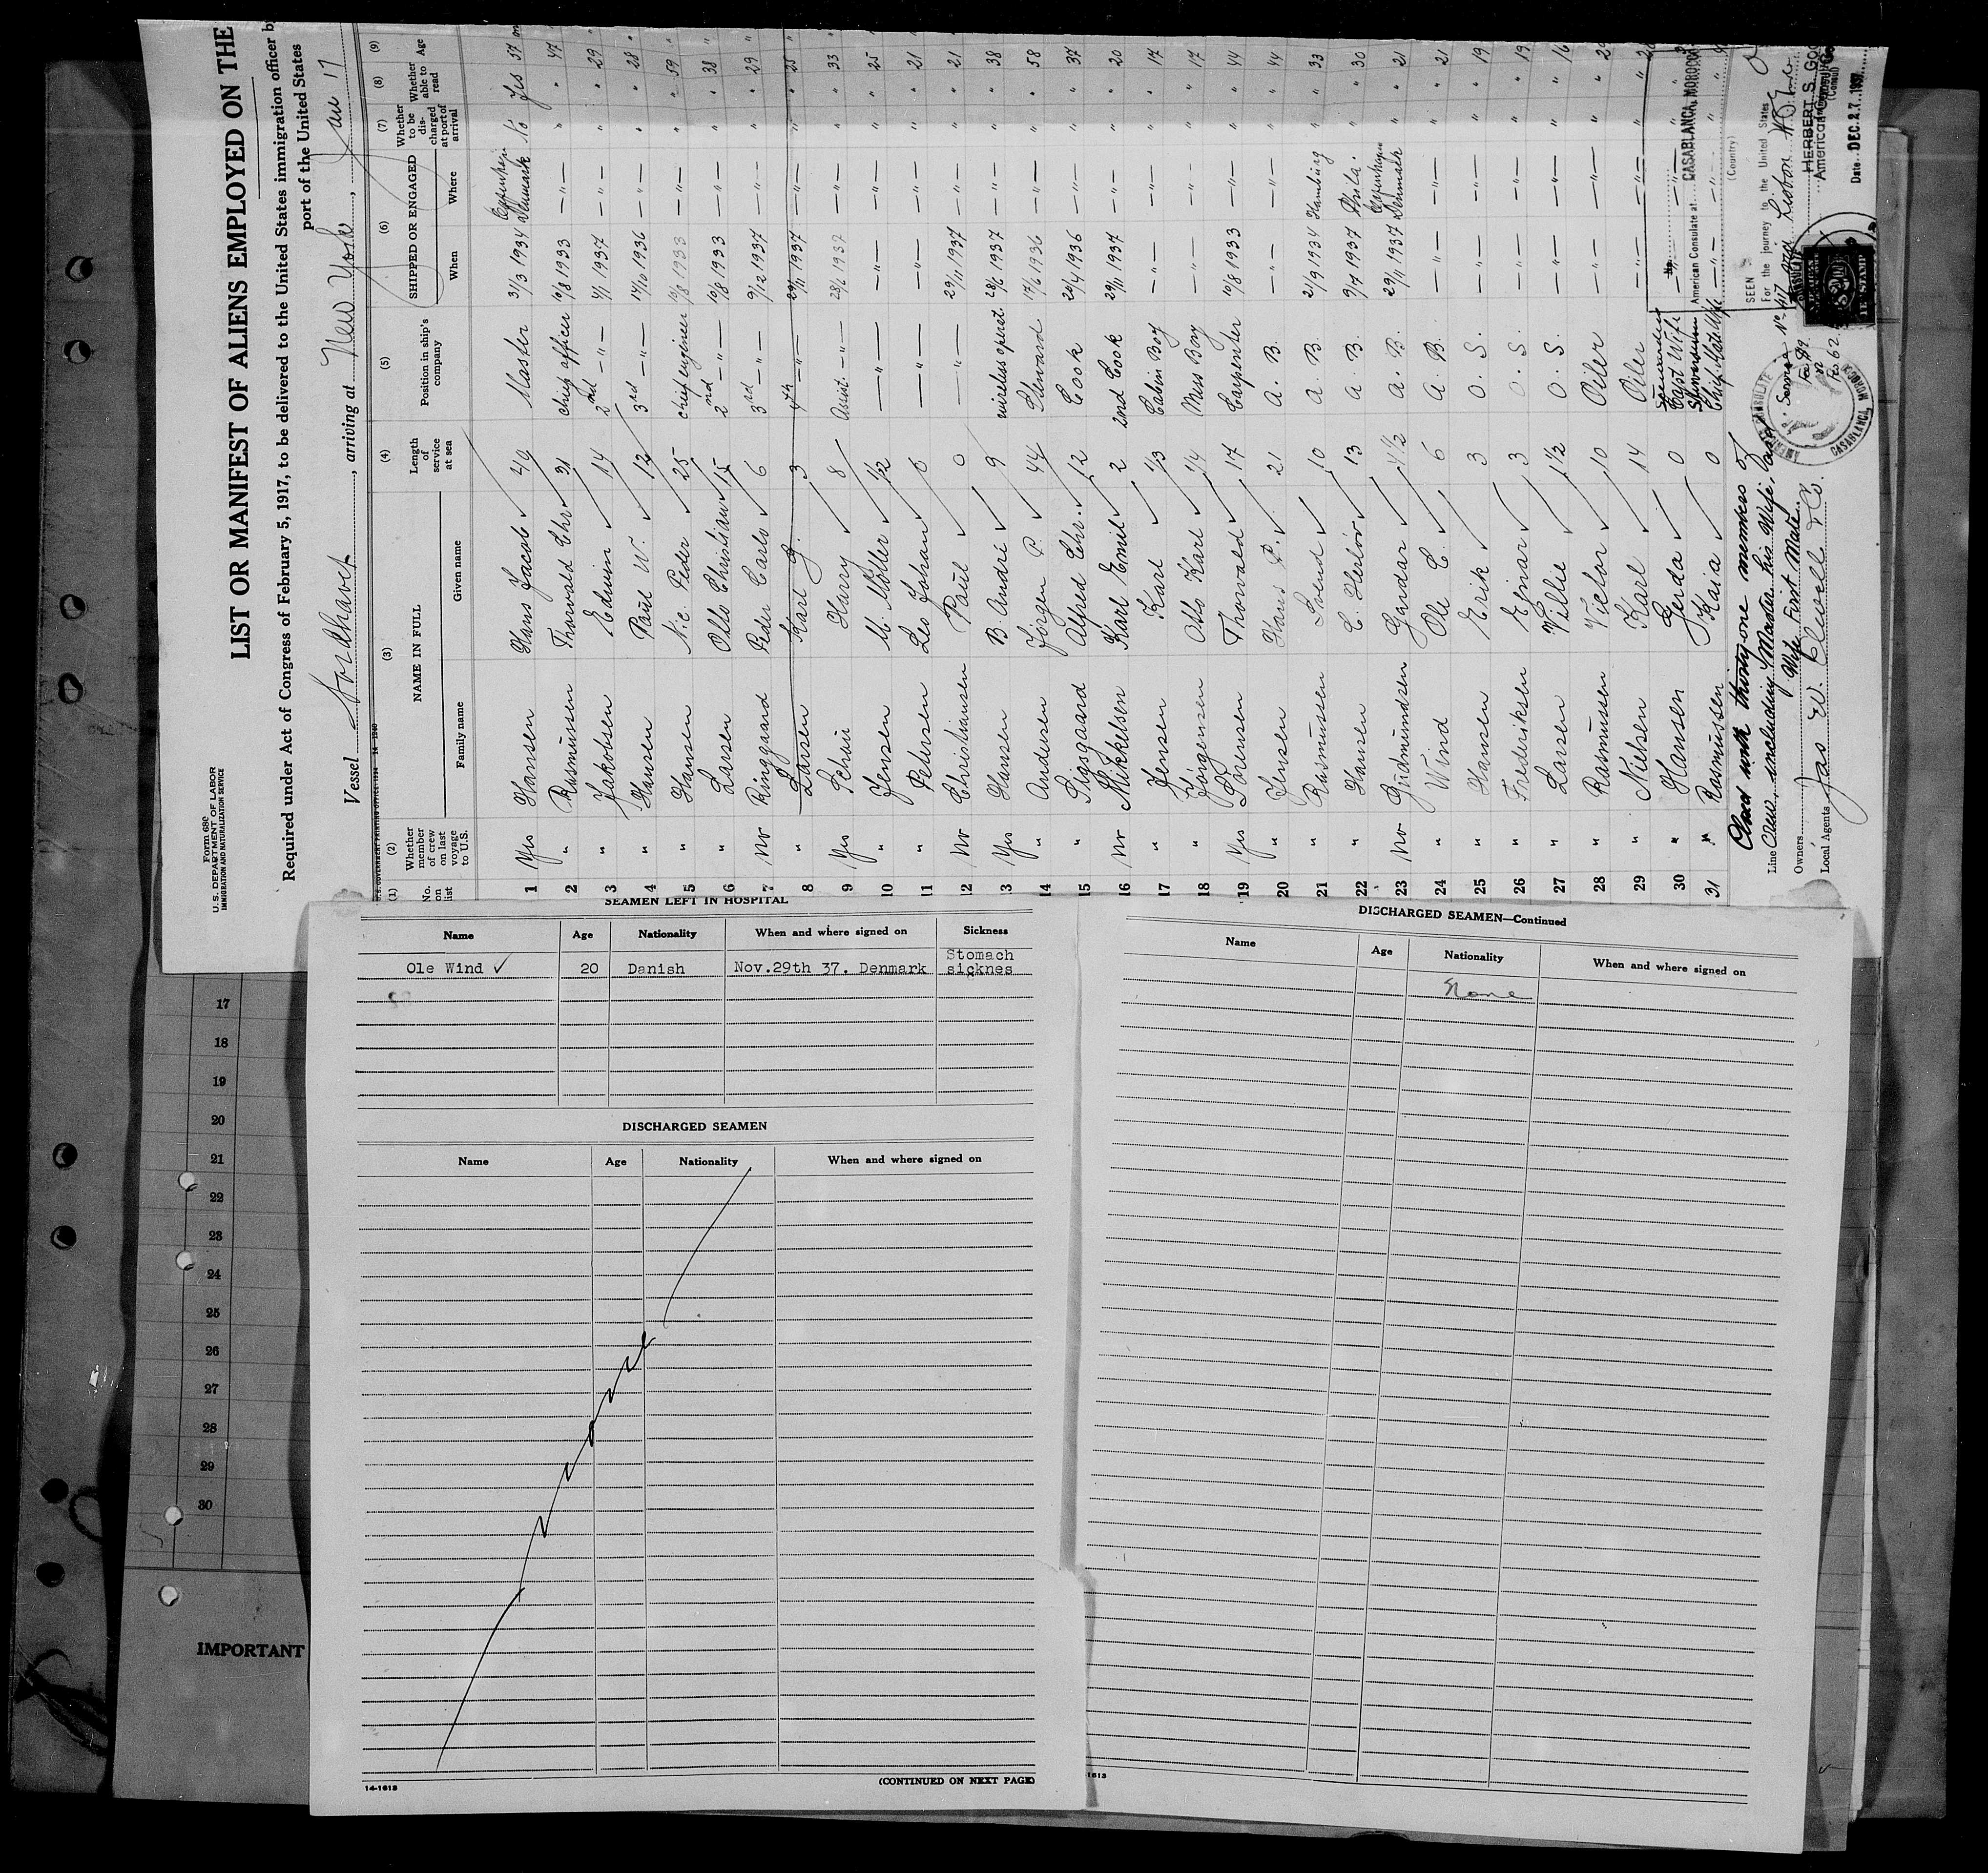 Form 680
U. S. DEPARTMENT OF LABOR
IMMIGRATION AND NATURALIZATION SERVICE
LIST OR MANIFEST OF ALIENS EMPLOYED ON THE
Required under Act of Congress of February 5, 1917, to be delivered to the United States immigration officer b
port of the United States
Vessel Nordhavet, arriving at New York, Jan 17
(1) No. on list (2) Whether member of crew on last voyage to U.S. (3) NAME IN FULL Family name Given name (4) Length of service at sea (5) Position in ship's company (6) SHIPPED OR ENGAGED When Where (7) Whether to be discharged at port of arrival (8) Whether able to read (9) Age
1 Yes Hansen Hans Jacob 40 Master 31/3 1934 Copenhagen Denmark No Yes 57
2 " Rasmussen Thorvald Chr. 31 chief officer 10/8 1933 —"— " " 47
3 " Jakobsen Edwin 14 2nd —"— 4/1 1937 —"— " " 29
4 " Hansen Paul W. 12 3rd —"— 14/10 1936 —"— " " 28
5 " Hansen N.C. Peder 25 chief engineer 10/8 1933 —"— " " 59
6 " Larsen Otto Christian 15 2nd —"— 10/8 1933 —"— " " 38
7 No Ringgaard Peder Carlo 6 3rd —"— 9/12 1937 —"— " " 29
8 " Larsen Karl G. 3 4th —"— 29/11 1937 —"— " " 25
9 Yes Schou Harry 8 Assist —"— 28/6 1937 —"— " " 33
10 " Jensen M. Möller 1/2 —"— —"— —"— " " 25
11 " Petersen Leo Johan 0 —"— —"— —"— " " 21
12 No Christiansen Paul 0 —"— 29/11 1937 —"— " " 21
13 Yes Hansen B. André 9 wireless operat. 28/6 1937 —"— " " 38
14 " Andersen Jörgen P. 44 Steward 17/6 1936 —"— " " 58
15 " Sigsgaard Alfred Chr. 12 Cook 20/4 1936 —"— " " 37
16 No Mikkelsen Karl Emil 2 2nd Cook 29/11 1937 —"— " " 20
17 " Jensen Karl 1/3 Cabin Boy —"— —"— " " 17
18 " Jörgensen Otto Karl 1/4 Mess Boy —"— —"— " " 17
19 Yes Sörensen Thorvald 17 Carpenter 10/8 1933 —"— " " 44
20 " Jensen Hans P. 21 A. B. —"— —"— " " 44
21 " Rasmussen Svend 10 A. B. 21/9 1934 Hamburg " " 33
22 " Hansen C. Herlöv 13 A. B. 9/7 1937 Phila. " " 30
23 No Gudmundsen Gardar 4 1/2 A. B. 29/11 1937 Copenhagen Denmark " " 21
24 " Wind Ole C. 6 A. B. —"— —"— " " 21
25 " Hansen Erik 3 O. S. —"— —"— " " 19
26 " Frederiksen Ejnar 3 O. S. —"— —"— " " 19
27 " Larsen Villie 1 1/2 O. S. —"— —"— " " 16
28 " Rasmussen Victor 10 Oiler —"— —"— " "
29 " Nielsen Karl 14 Oiler —"— —"— " "
30 " Hansen Gerda 0 Capt Wife —"— —"— " "
31 " Rasmussen Kaja 0 Chief Mate Wife —"— —"— "
Closed with thirty-one members of
Line Crew, including Master his Wife, and
Wife First Mate.
Owners
Local Agents Jas W. Elwell & Co.
American Consulate at CASABLANCA, MOROCCO
(Country)
SEEN
For the journey to the United States
HERBERT S. GO
American
(Consul)
Date DEC. 27. 1937
AMERICAN CONSULATE CASABLANCA, MOROCCO
SEAMEN LEFT IN HOSPITAL
Name Age Nationality When and where signed on Sickness
Ole Wind 20 Danish Nov.29th 37. Denmark Stomach sicknes
DISCHARGED SEAMEN
Name Age Nationality When and where signed on
14-1613
(CONTINUED ON NEXT PAGE)
DISCHARGED SEAMEN—Continued
Name Age Nationality When and where signed on
None
1613
17
18
19
20
21
22
23
24
25
26
27
28
29
30
IMPORTANT